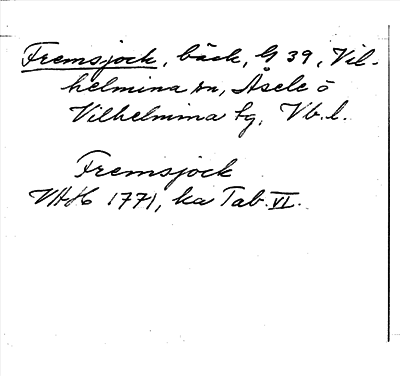 Fremsjock, bäck, G 39, Vil-
helmina sn, Åsele o
Vilhelmina tg, Vb. l.
Fremsjock
VAH 1771, ka Tab. VI.